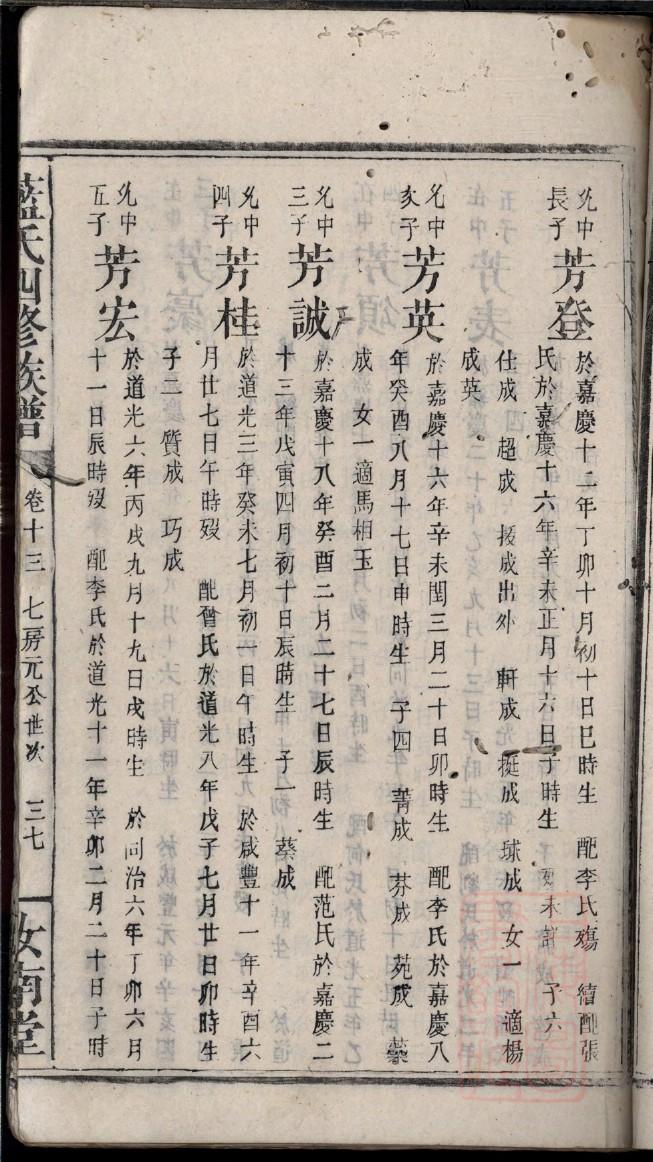 允中長子
芳登
於嘉慶十二年丁卯十月初十日巳時生 配李氏殤 續配張
氏於嘉慶十六年辛未正月十六日子時生 歿未詳 子六
仕成 超成 援成出外 軒成 挺成 球成 女一 適楊
成英
允中次子
芳英
於嘉慶十六年辛未閏三月二十日卯時生 配李氏於嘉慶八
年癸酉八月十七日申時生 子四 菁成 芬成 苑成 藜
成 女一適馬相玉
允中三子
芳誠
於嘉慶十八年癸酉二月二十七日辰時生 配范氏於嘉慶二
十三年戊寅四月初十日辰時生 子一 葵成
允中四子
芳桂
於道光三年癸未七月初一日午時生 於咸豐十一年辛酉六
月廿七日午時歿 配曾氏於道光八年戊子七月廿日卯時生
子二 質成 巧成
允中五子
芳宏
於道光六年丙戌九月十九日戌時生 於同治六年丁卯六月
十一日辰時歿 配李氏於道光十一年辛卯二月二十日子時
藍氏四修族譜 卷十三 七房元公世次 三七 汝南堂